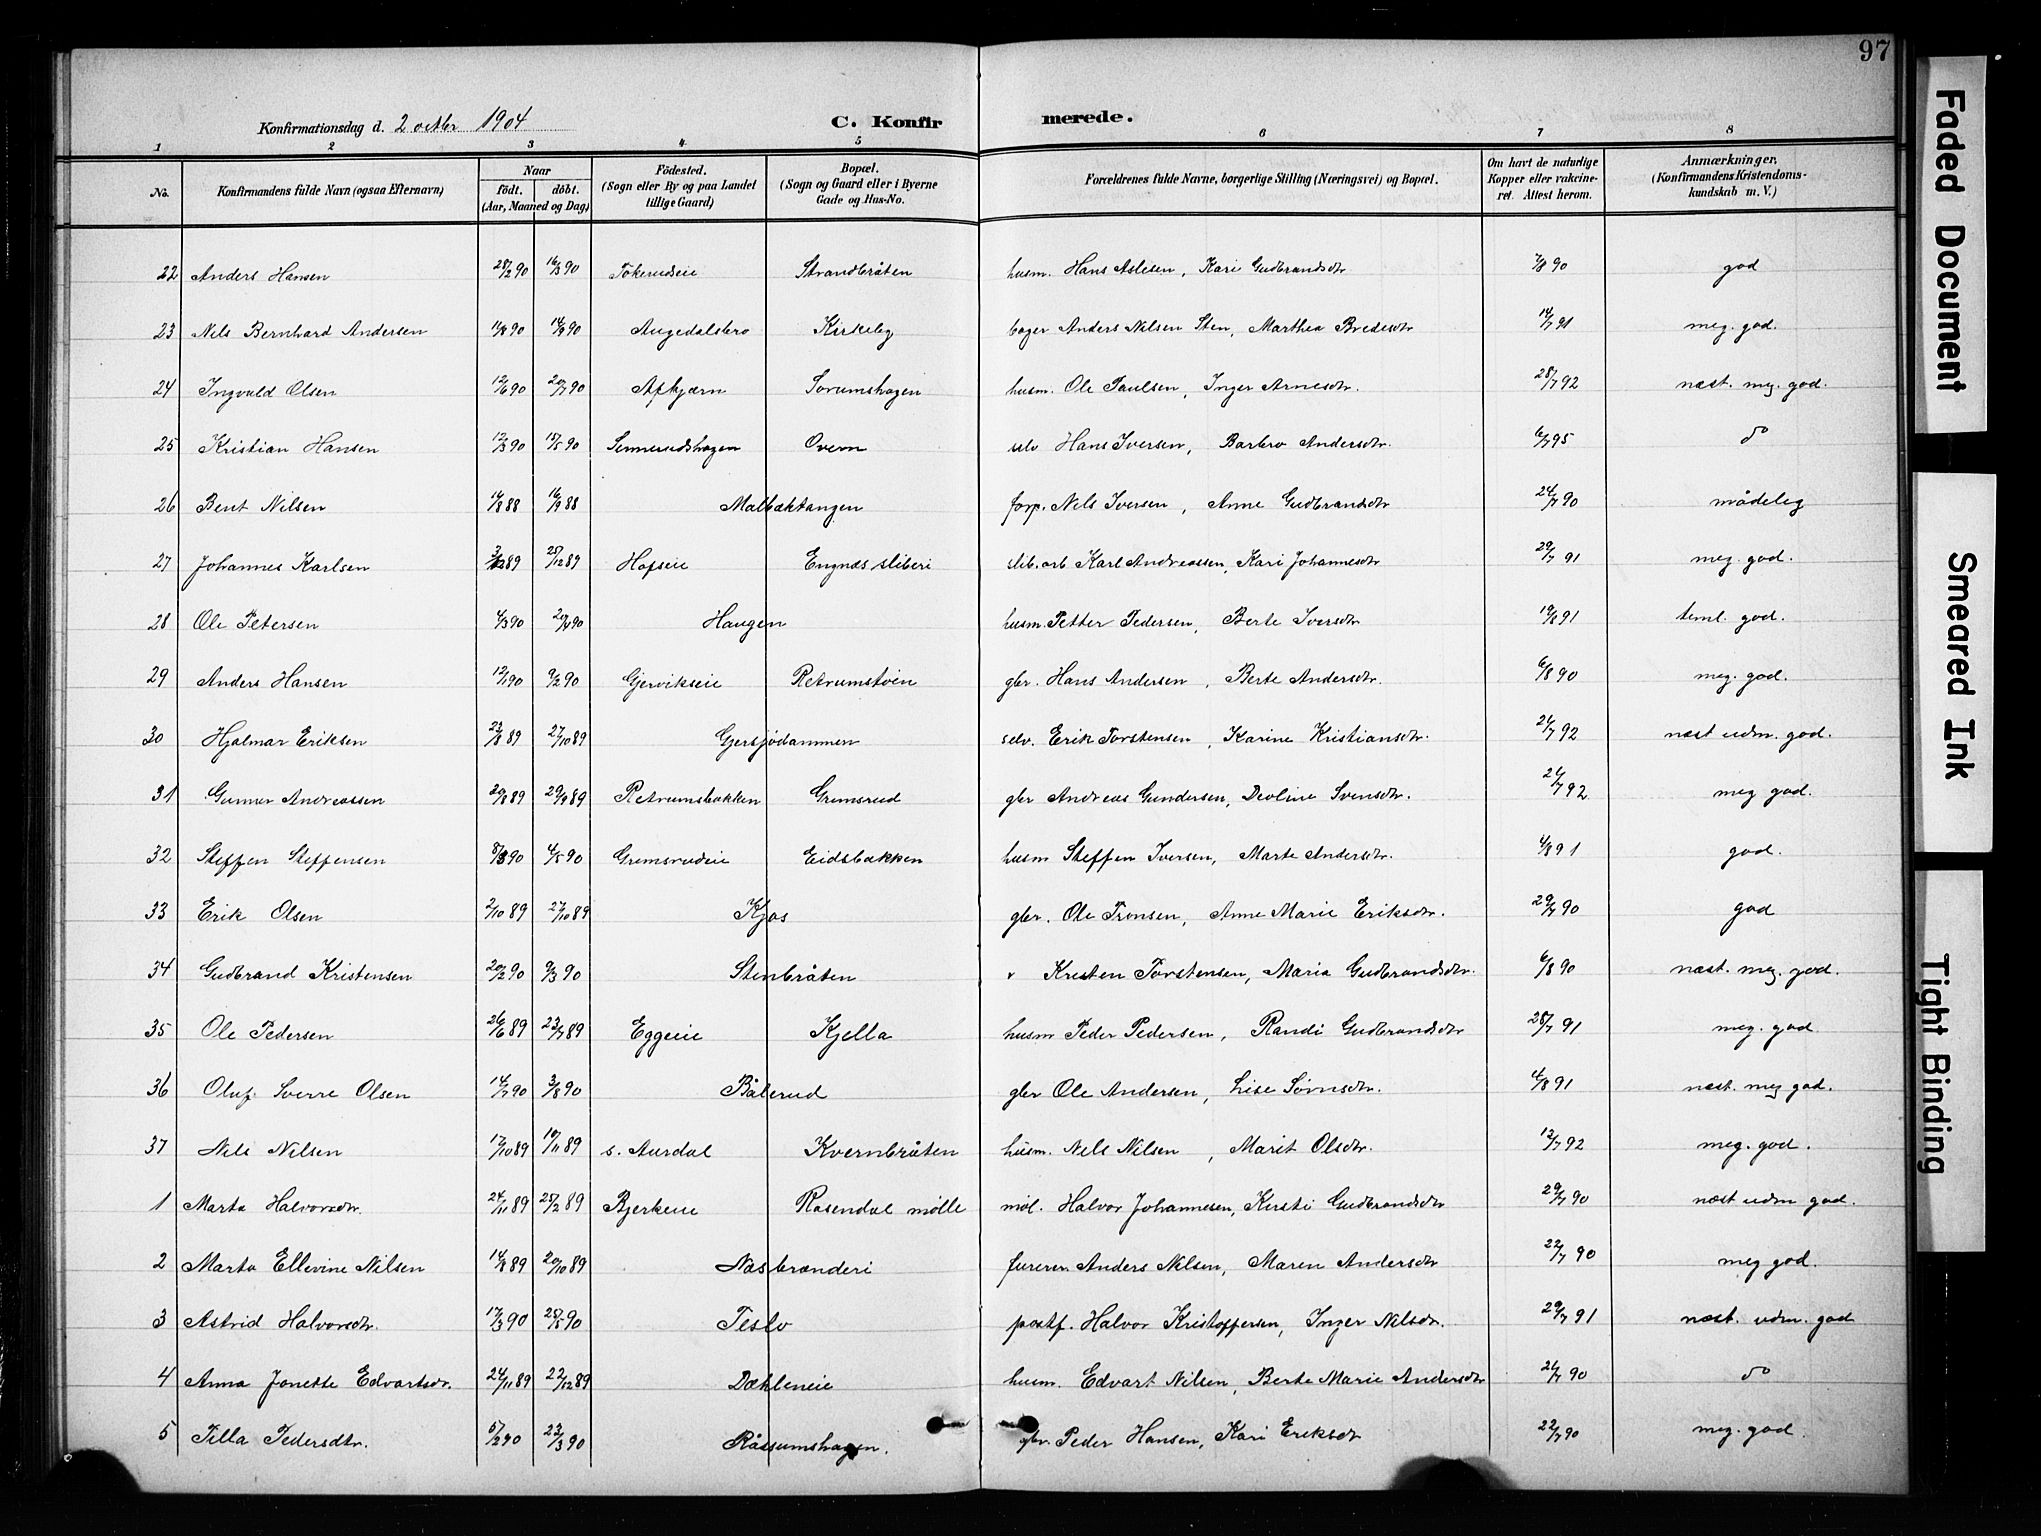 97
Konfirmationsdag d. 2 octbr 1904
C. Konfirmerede.
1 2 3 4 5 6 7 8
No. Konfirmandens fulde Navn (ogsaa Efternavn) Naar födt. döbt. (Aar, Maaned og Dag) Födested. (Sogn eller By og paa Landet tillige Gaard) Bopæl. (Sogn og Gaard eller i Byerne Gade og Hus-No. Forældrenes fulde Navne, borgerlige Stilling (Næringsvei) og Bopæl. Om havt de naturlige Kopper eller vakcineret. Attest herom. Anmærkninger. (Konfirmandens Kristendomskundskab m. V.)
22 Anders Hansen 28/2 90 16/3 90 Tokerudseie Strandbråten husm. Hans Aslesen, Kari Gudbrandsdtr 7/8 90 god
23 Nils Bernhard Andersen 11/8 90 14/9 90 Augedalsbro Kirkeby bager Anders Nilsen Sten, Marthea Bredesdtr 14/7 91 meg. god.
24 Ingvald Olsen 12/6 90 20/7 90 Afkjærn Sorumshagen husm. Ole Paulsen, Inger Arnesdtr. 28/7 92 næst. meg. god.
25 Kristian Hansen 12/3 90 15/5 90 Sennerudshagen Overn selv Hans Iversen, Barbro Andersdtr. 6/7 95 do
26 Bent Nilsen 14/8 88 16/9 88 Malbæktangen forp. Nils Iversen, Anne Gudbrandsdtr 24/7 90 mådelig
27 Johannes Karlsen 3/12 89 25/12 89 Hofseie Engnæs sliberi slib.arb. Karl Andreassen, Kari Johannesdtr 29/7 91 meg. god.
28 Ole Petersen 4/3 90 20/4 90 Haugen husm. Petter Pedersen, Berte Iversdtr 19/8 91 teml. god.
29 Anders Hansen 12/1 90 9/2 90 Gjervikseie Retrumstøen gbr. Hans Andersen, Berte Andersdtr. 6/8 90 meg. god.
30 Hjalmar Eriksen 23/8 89 27/10 89 Gjersjödammen selv. Erik Torstensen, Karine Kristiansdtr. 21/7 92 næst udm. god.
31 Gunnar Andreassen 20/8 89 29/9 89 Retrumsbakken Grimsrud gbr Andreas Gundersen, Deoline Svensdtr. 21/7 92 meg god.
32 Steffen Steffensen 8/3 90 4/5 90 Grimsrudeie Eidsbakken husm Steffen Iversen, Marte Andersdtr. 4/8 91 god.
33 Erik Olsen 2/10 89 27/10 89 Kjos gbr. Ole Tronsen, Anne Marie Eriksdtr. 29/7 90 god
34 Gudbrand Kristensen 20/2 90 9/3 90 Stenbråten " Kristen Torstensen, Maria Gudbrandsdtr. 6/8 90 næst. meg. god.
35 Ole Pedersen 26/6 89 23/7 89 Eggeeie Kjella husm Peder Pedersen, Randi Gudbrandsdtr 28/7 91 meg. god
36 Oluf Sverre Olsen 14/7 90 3/8 90 Bålerud gbr Ole Andersen, Lise Sørnsdtr. 4/8 91 næst. meg god.
37 Nils Nilsen 17/10 89 10/11 89 s. Aurdal Kvernbråten husm. Nils Nilsen, Marit Olsdtr. 12/7 92 meg. god.
1 Marta Halvorsdtr. 24/11 89 25/12 89 Bjerkeeie Rosendal mølle møl. Halvor Johannesen, Kersti Gudbrandsdtr 29/7 90 næst udm god.
2 Marta Ellevine Nilsen 14/9 89 20/10 89 Næsbrænderi furerer. Anders Nilsen, Maren Andersdtr 22/7 90 meg god.
3 Astrid Halvorsdtr. 17/3 90 25/5 90 Teslo postf. Halvor Kristoffersen, Inger Nilsdtr. 29/7 91 næst. udm. god
4 Anna Jonette Edvartsdtr. 24/11 89 22/12 89 Dækleneie husm. Edvart Nilsen, Berte Marie Andersdtr 21/7 90 do
5 Tilla Pedersdtr. 5/2 90 23/3 90 Råssumshagen. gbr. Peder Hansen, Kari Eriksdtr 22/7 90 meg. god.
Faded Document
Smeared Ink
Tight Binding